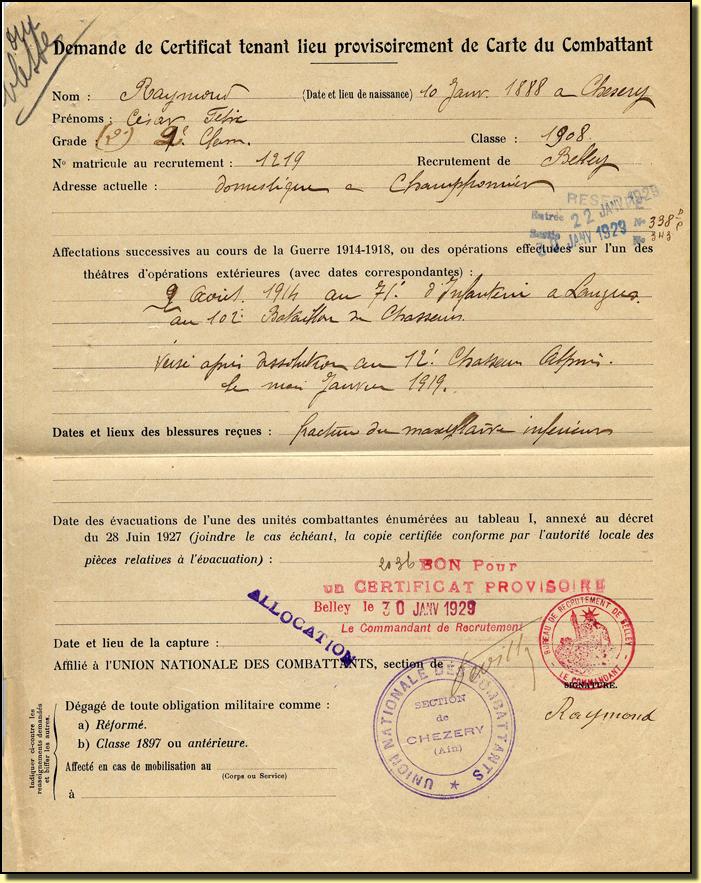 Demande de Certificat tenant lieu provisoirement de Carte du Combattant
Nom : Raymond (Date et lieu de naissance) 10 Janv. 1888 a Chesery
Prénoms : César
Grade : (2) 2e Classe : 1908.
No matricule au recrutement : 1219 Recrutement de Belley
Adresse actuelle : domestique a Champfromier
RESERVE
Entrée 22 JANV 1929 No 338
Sortie 30 JANV 1929 No 343
Affectations successives au cours de la Guerre 1914-1918, ou des opérations effectuées sur l'un des
théâtres d'opérations extérieures (avec dates correspondantes) :
9 Aout. 1914 au 71e d'Infanterie a Langres
au 102e Bataillon de Chasseurs
Versé après dissolution au 12e Chasseur Alpins.
le mois Janvier 1919.
Dates et lieux des blessures reçues : fracture du maxillaire inferieure
Date des évacuations de l'une des unités combattantes énumérées au tableau I, annexé au décret
du 28 Juin 1927 (joindre le cas échéant, la copie certifiée conforme par l'autorité locale des
pièces relatives à l'évacuation) :
2036
BON Pour
un CERTIFICAT PROVISOIRE
Belley le 30 JANV 1929
Le Commandant de Recrutement
ALLOCATION
BUREAU DE RECRUTEMENT DE BELLEY
LE COMMANDANT
Date et lieu de la capture :
Affilié à l'UNION NATIONALE DES COMBATTANTS, section de
SIGNATURE.
Raymond
UNION NATIONALE DES COMBATTANTS
SECTION
de
CHEZERY
(Ain)
Indiquer ci-contre les
renseignements demandés
et biffer les autres.
Dégagé de toute obligation militaire comme :
a) Réformé.
b) Classe 1897 ou antérieure.
Affecté en cas de mobilisation au
(Corps ou Service)
à